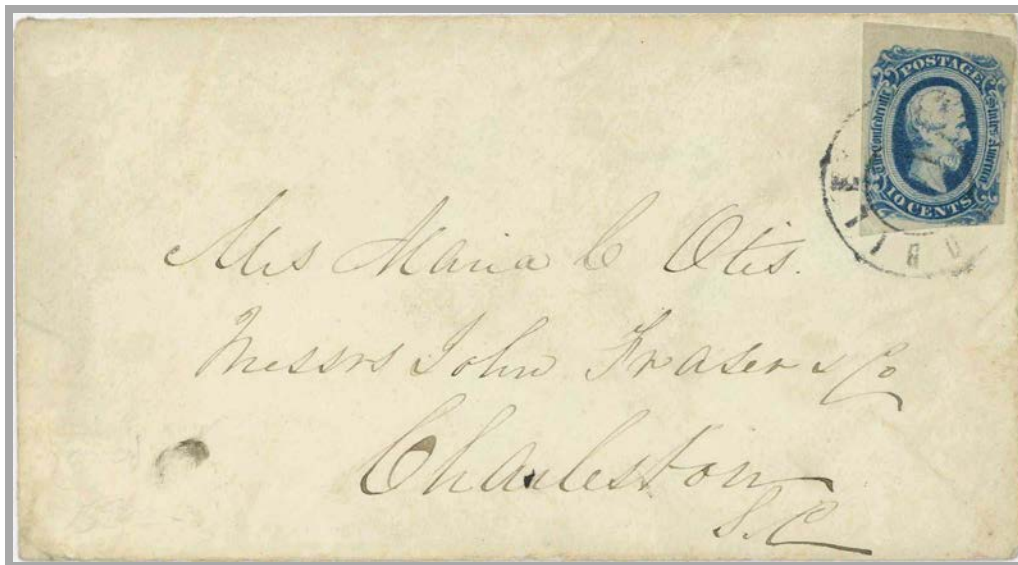 POSTAGE
The Confederate States America
10 CENTS
Mrs Maria C Otis.
Messrs John Fraser & Co
Charleston
S.C